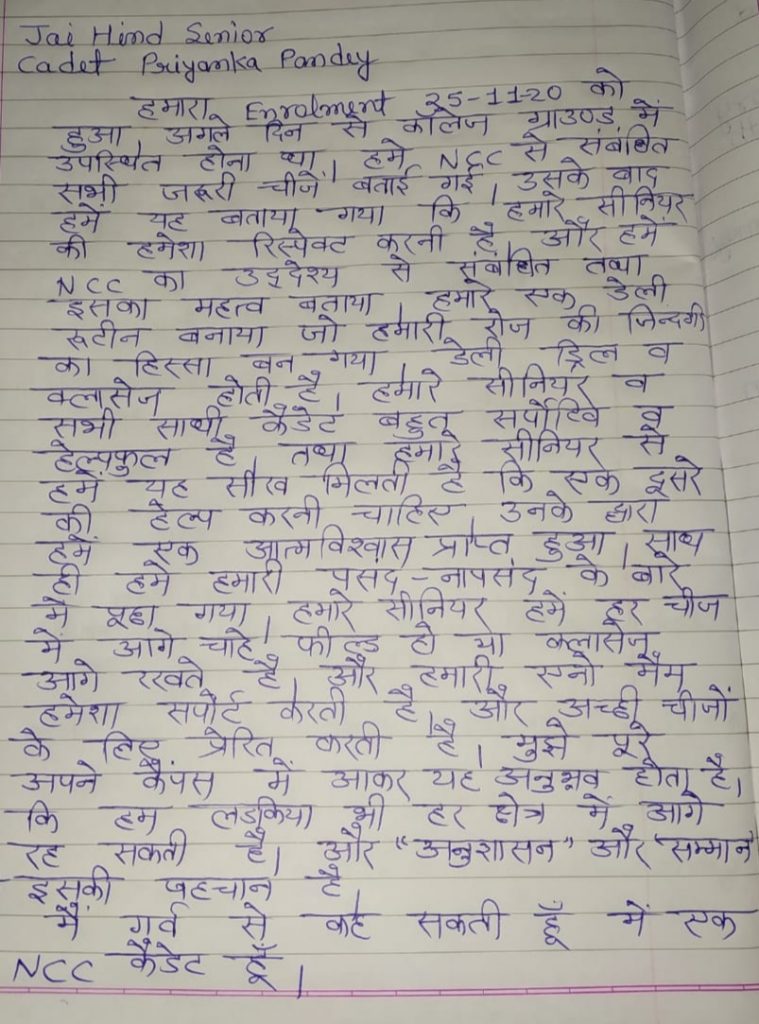 Jai Hind Senior
Cadet Priyanka Pandey
हमारा Enrolment 25-11-20 को
हुआ अगले दिन से कॉलेज ग्राउण्ड में
उपस्थित होना था, हमे NCC से संबंधित
सभी जरूरी चीजें बताई गई, उसके बाद
हमें यह बताया गया कि हमारे सीनियर
की हमेशा रिस्पेक्ट करनी है, और हमें
NCC का उद्देश्य से संबंधित तथा
इसका महत्व बताया, हमारे एक डेली
रूटीन बनाया जो हमारी रोज की जिन्दगी
का हिस्सा बन गया, डेली ड्रिल व
क्लासेज होती है, हमारे सीनियर व
सभी साथी कैडेट बहुत सर्पोटिव व
हेल्पफुल है, तथा हमारे सीनियर से
हमें यह सीख मिलती है कि एक दूसरे
की हेल्प करनी चाहिए उनके द्वारा
हमें एक आत्मविश्वास प्राप्त हुआ, साथ
ही हमे हमारी पसंद-नापसंद के बारे
में पूछा गया, हमारे सीनियर हमें हर चीज
में आगे चाहे फील्ड हो या क्लासेज
आगे रखते है, और हमारी एनो मैम
हमेशा सपोर्ट करती है, और अच्छी चीजों
के लिए प्रेरित करती है, मुझे पूरे
अपने कैंपस में आकर यह अनुभव होता है,
कि हम लडकिया भी हर क्षेत्र में आगे
रह सकती है, और "अनुशासन" और "सम्मान"
इसकी पहचान है,
मैं गर्व से कह सकती हूँ में एक
NCC कैडेट हूँ |